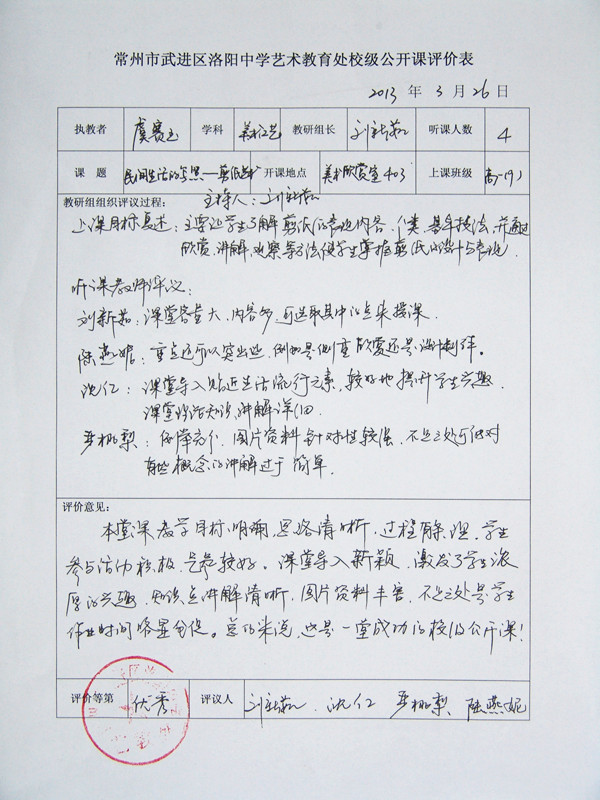 常州市武进区洛阳中学艺术教育处校级公开课评价表
2013 年 3 月 26 日
执教者 虞赛玉 学科 美术 教研组长 刘新茹 听课人数 4
课 题 民间生活的 剪纸 开课地点 美术欣赏室403 上课班级 高一(9)
教研组组织评议过程: 主持人:刘新茹
上课目标复述:主要让学生了解剪纸的表现内容、个类、基本技法,并通过
欣赏、讲解、观察等方法使学生掌握剪纸的设计与表现.
听课教师评议:
刘新茹:课堂容量大、内容多,可选取其中的点来授课.
陆燕妮:重点还可以突出些,例如是侧重欣赏还是设计制作.
沈仁:课堂导入贴近生活流行元素,较好地提升学生兴趣.
课堂 知识讲解详细.
尹柳梨: 图片资料针对性较强.不足之处可能对
有些概念的讲解过于简单.
评价意见:
本堂课教学目标明确,思路清晰,过程 学生
参与活动积极,气氛较好。课堂导入新颖,激发了学生浓
厚的兴趣,知识点讲解清晰,图片资料丰富,不足之处是学生
作业时间略显仓促。总的来说,也是一堂成功的校级公开课!
评价等第 优秀 评议人 刘新茹、沈仁 尹柳梨、陆燕妮